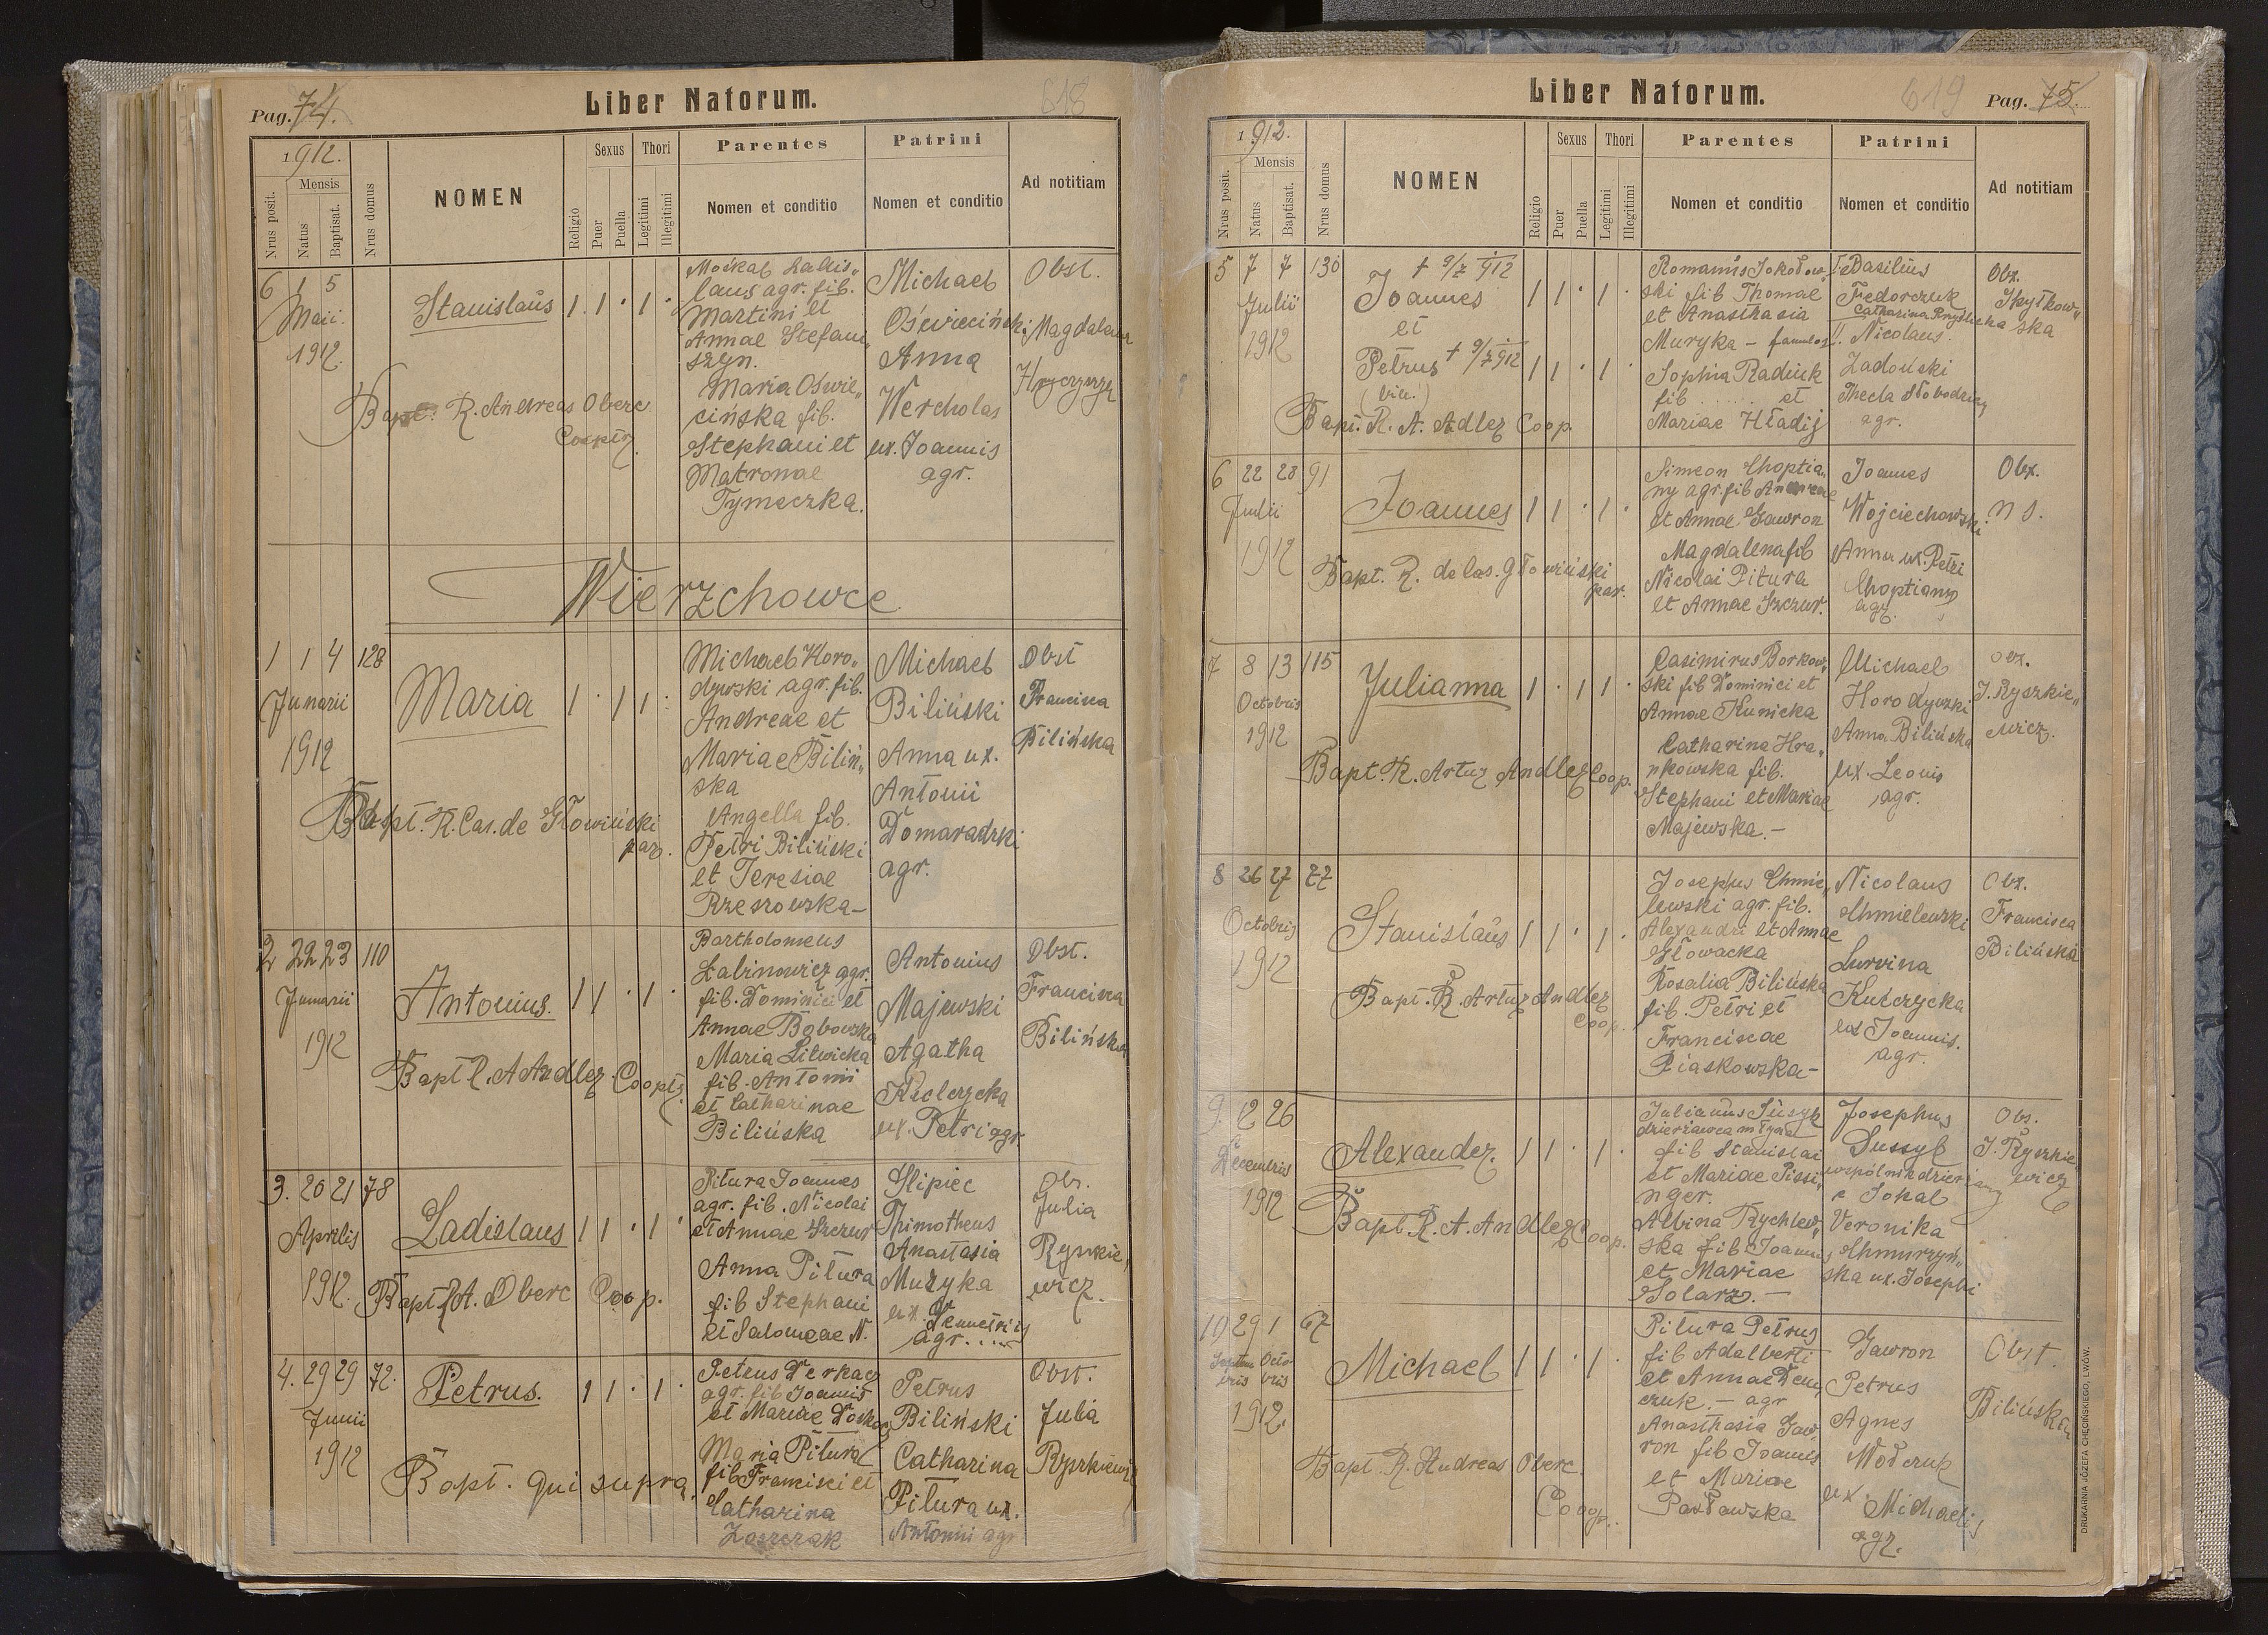 Pag. 74.
Liber Natorum.
618
1912.
Nrus posit.
Mensis
Natus
Baptisat.
Nrus domus
NOMEN
Religio
Sexus
Puer
Puella
Thori
Legitimi
Illegitimi
Parentes
Nomen et conditio
Patrini
Nomen et conditio
Ad notitiam
6 1 5
Maii
1912.
Stanislaus
1 1 · 1 ·
Ladis„
laus agr. fil.
Martini et
Annae Stefani„
szyn.
Maria Oświe„
cińska fil.
Stephani et
Matronae
Tymeczka.
Michael
Oświeciński
Anna
Wercholas
ux. Joannis
agr.
Obst.
Magdalena
Bapt. R. Andreas Oberc
Cooptr.
Wierzchowce
1 1 4 128
Januarii
1912
Maria
1 · 1 1 ·
Michael Horo„
dywski agr. fil.
Andreae et
Mariae Biliń„
ska
Angella fil.
Petri Biliński
et Teresiae
Rzeszowska—
Michael
Biliński
Anna ux.
Antonii
Domaradzki
agr.
Obst
Francisca
Bilińska
Bapt. R. Cas. de Głowiński
par.
2 22 23 110
Januarii
1912
Antonius.
1 1 · 1 ·
Bartholomeus
Łabinowicz agr.
fil. Dominici et
Annae Bobowska
Maria Litwicka
fil. Antonii
et Catharinae
Bilińska
Antonius
Majewski
Agatha
ux. Petri agr.
Obst.
Francisca
Bilińska
Bapt R. A Andlez Cooptr.
3. 20 21 78
Aprilis
1912.
Ladislaus
1 1 · 1 ·
Pitura Joannes
agr. fil. Nicolai
et Annae Szczur
Anna Pitura
fil Stephani
et Salomeae N.
Ślipiec
Thimotheus
Anastasia
Muzyka
ux. Demetrii
agr.....
Ob.
Julia
Ryszkie„
wicz.
Bapt R A. Oberc Coop.
4. 29 29 72.
Junii
1912
Petrus.
1 1 · 1 ·
Petrus Derkacz
agr. fil Joannis
et Mariae
Maria Pitura
fil Francisci et
Catharina
Zaszczak
Petrus
Biliński
Catharina
Pitura ux.
Antonii agr
Obst.
Julia
Ryszkiewicz
Bapt. qui supra.
Liber Natorum.
619
Pag. 75.
1912.
Nrus posit.
Mensis
Natus
Baptisat.
Nrus domus
NOMEN
Religio
Sexus
Puer
Puella
Thori
Legitimi
Illegitimi
Parentes
Nomen et conditio
Patrini
Nomen et conditio
Ad notitiam
5 7 7 130
Julii
1912
† 9/7 912
Joannes
et
Petrus † 9/7 912
1 1 · 1 ·
1 1 · 1 ·
Romanus Sokołow„
ski fil Thomae
et Anasthasia
Muryka – famulos
Sophia Radiuk
fil ..... et
Mariae Hładij
I. Basilius
Fedorczuk
Catharina
II. Nicolaus
Zadoński
Thecla Słobodzian
agr.
Obx.
Spytkow„
ska
Bapt. R. A. Adlez Coop.
6 22 28 91
Julii
1912
Joannes
1 1 · 1 ·
Simeon Choptia„
ny agr. fil Andreae
et Annae Gawron
Magdalena fil
Nicolai Pitura
et Annae Szczur.
Joannes
Wojciechowski
Anna ux. Petri
Choptiany
agr.
Obx.
n s.
Bapt. R. de Cas. Głowiński
par.
7 8 13 115
Octobris
1912
Julianna
1 · 1 1 ·
Casimirus Borkow„
ski fil Dominici et
Annae Kunicka
Catharina Hra„
nkowska fil.
Stephani et Mariae
Majewska.—
Michael
Horodywski
Anna Bilińska
ux. Leonis
agr.
obx.
J. Ryszkie„
wicz.
Bapt. R. Artur Andlez Coop.
8 26 27 77
Octobris
1912
Stanislaus
1 1 · 1 ·
Josephus Chmie„
lewski agr. fil.
Alexandri et Annae
Głowacka
Rosalia Bilińska
fil. Petri et
Franciscae
Piaskowska—
Nicolaus
Chmielewski
Kulczycka
ux Joannis.
agr.
Obx.
Francisca
Bilińska
Bapt. R. Artur Andlez
Coop.
9. 12 26
Decembris
1912
Alexander.
1 1 · 1 ·
Julianus Susyk
dzierżawca młyna
fil Stanislai
et Mariae Pissi„
nger.
Albina Rychlew„
ska fil. Joannis
et Mariae
Solarz.—
Josephus
Sussyk
wspólnik dzierżawy
z Sokal
Veronika
Chmurzyn„
ska ux. Josephi
Obs.
J. Ryszkie„
wicz
Bapt. R. A. Andlez Coop.
10 29 1 67
Septem Octo
bris bris
1912.
Michael
1 1 · 1 ·
Pitura Petrus
fil Adalberti
et Annae Dem„
czuk.— agr
Anasthasia Gaw„
ron fil Joannis
et Mariae
Pasławska
Gawron
Petrus
Agnes
Wołczuk
ux. Michaelis
agr.
Obst.
Bilińska
Bapt R. Andreas Oberc
Coop.
DRUKARNIA JÓZEFA CHĘCIŃSKIEGO, LWÓW.